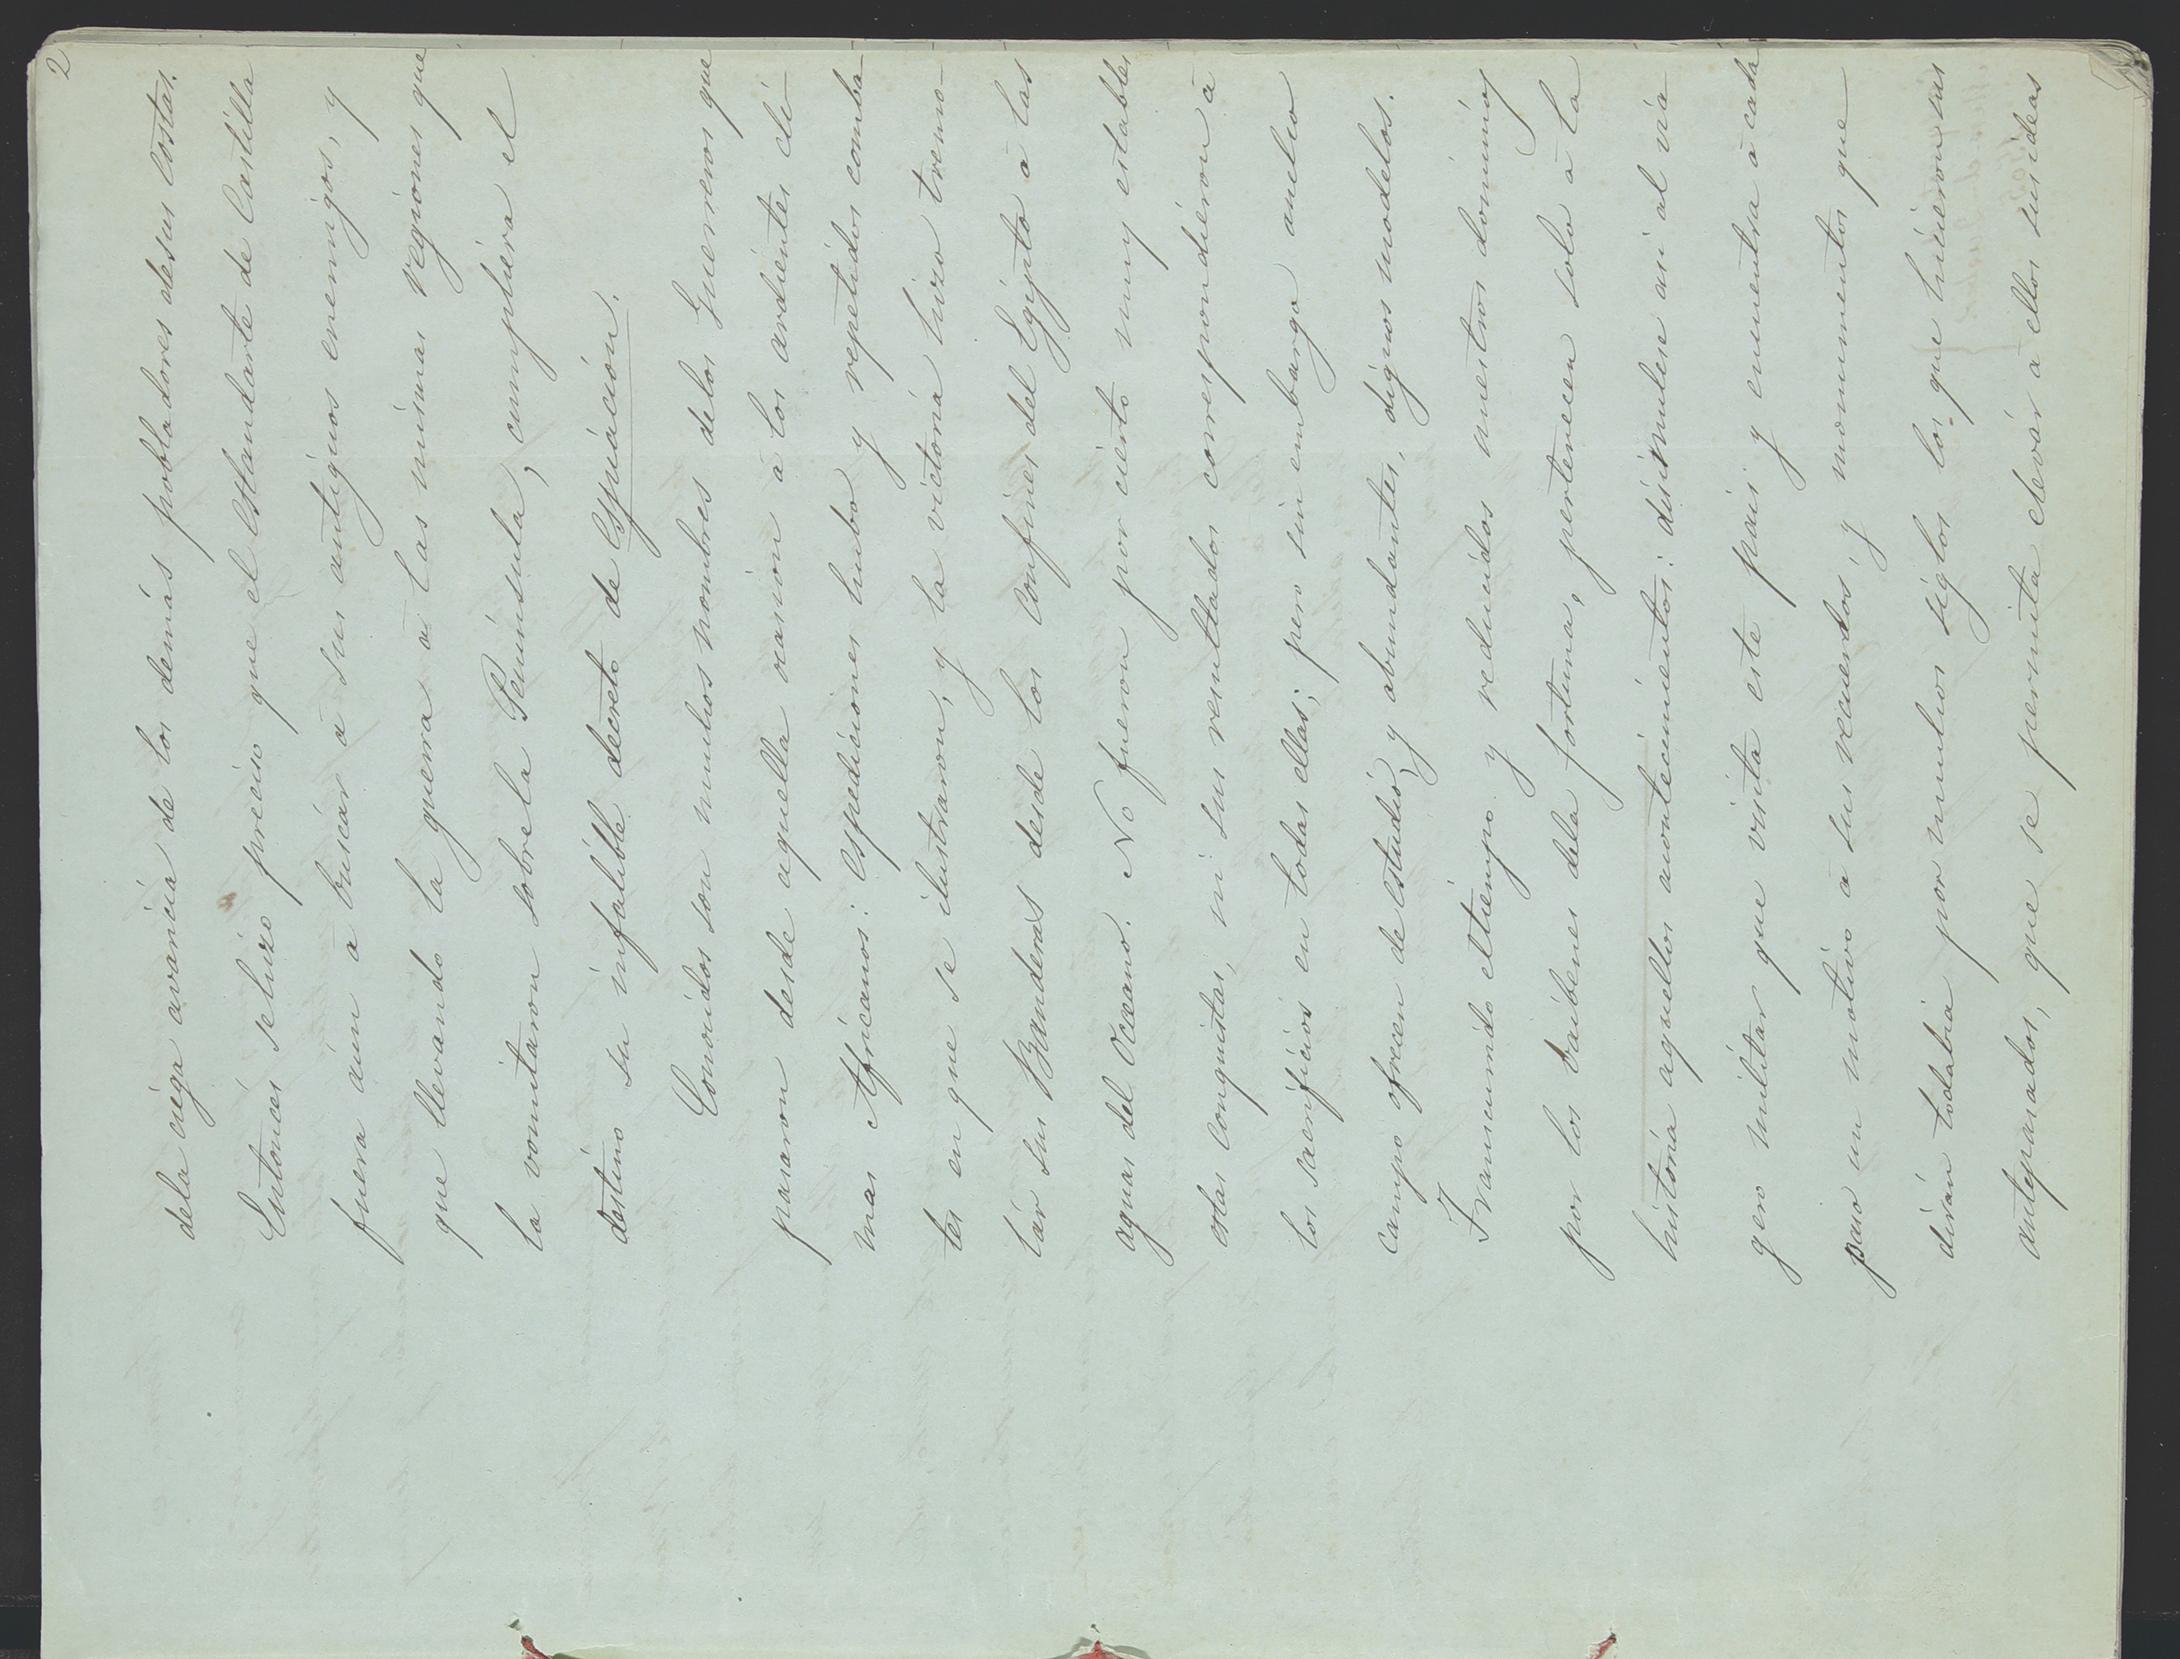 2
dela ciega avaricia de los demás pobladores desus Costas.
Entonces sehizo preciso que el Estandarte de Castilla
fuera aún à buscár à sus antiguos enemigos, y
que llevando la guerra à las mismas regiones que
la vomitaron sobre la Península, cumpliéra el
destino su infalible decreto de Espiación.
Conocidos son muchos nombres delos Guerreros que
pasaron desde aquella ocasion à los ardientes cli-
mas Africanos: Espediciones hubo y repetidos comba-
tes en que se ilustraron, y la victoria hizo tremo-
lár sus Banderas desde los Confines del Egipto à las
aguas del Occeano. No fueron por cierto muy estables
estas Conquistas, ni sus resultados correspondieron à
los sacrificios en todas ellas; pero sin embargo ancho
campo ofrecen de estudio, y abundantes, dignos modelos.
Transcurrido eltiempo y reducidos nuestros dominios
por los vaibenes dela fortuna, pertenecen solo à la
história aquellos acontecimientos: disimulese asi al via-
gero militar que visita este pais y encuentra à cada
paso un motivo à sus recuerdos, y monumentos que
dirán todabia por muchos siglos lo que hicieron sus
antepasados, que se permita elevár à ellos sus ideas